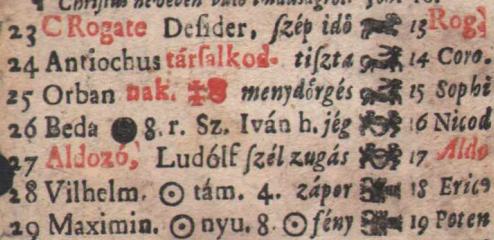 23 C Rogate Desider, szép idö 13 Rog.
24 Antiochus társalkod- tiszta 14 Coro.
25 Orban nak. menydörgés 15 Sophi
26 Beda 8. r. Sz. Iván h. jég 16 Nicod
27 Aldozó, Ludólf szél zugás 17 Aldo
28 Vilhelm. ☉ tám. 4. zápor 18 Eric
29 Maximin. ☉ nyu. 8 ☉ fény 19 Poten